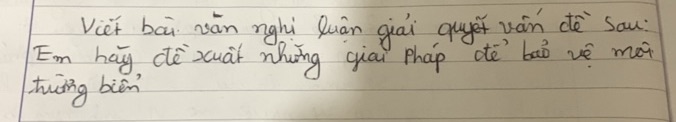 Viết bài văn nghị luận giải quyết vấn đề sau:
Em hãy đề xuất những giải pháp để bảo vệ môi
trường biển